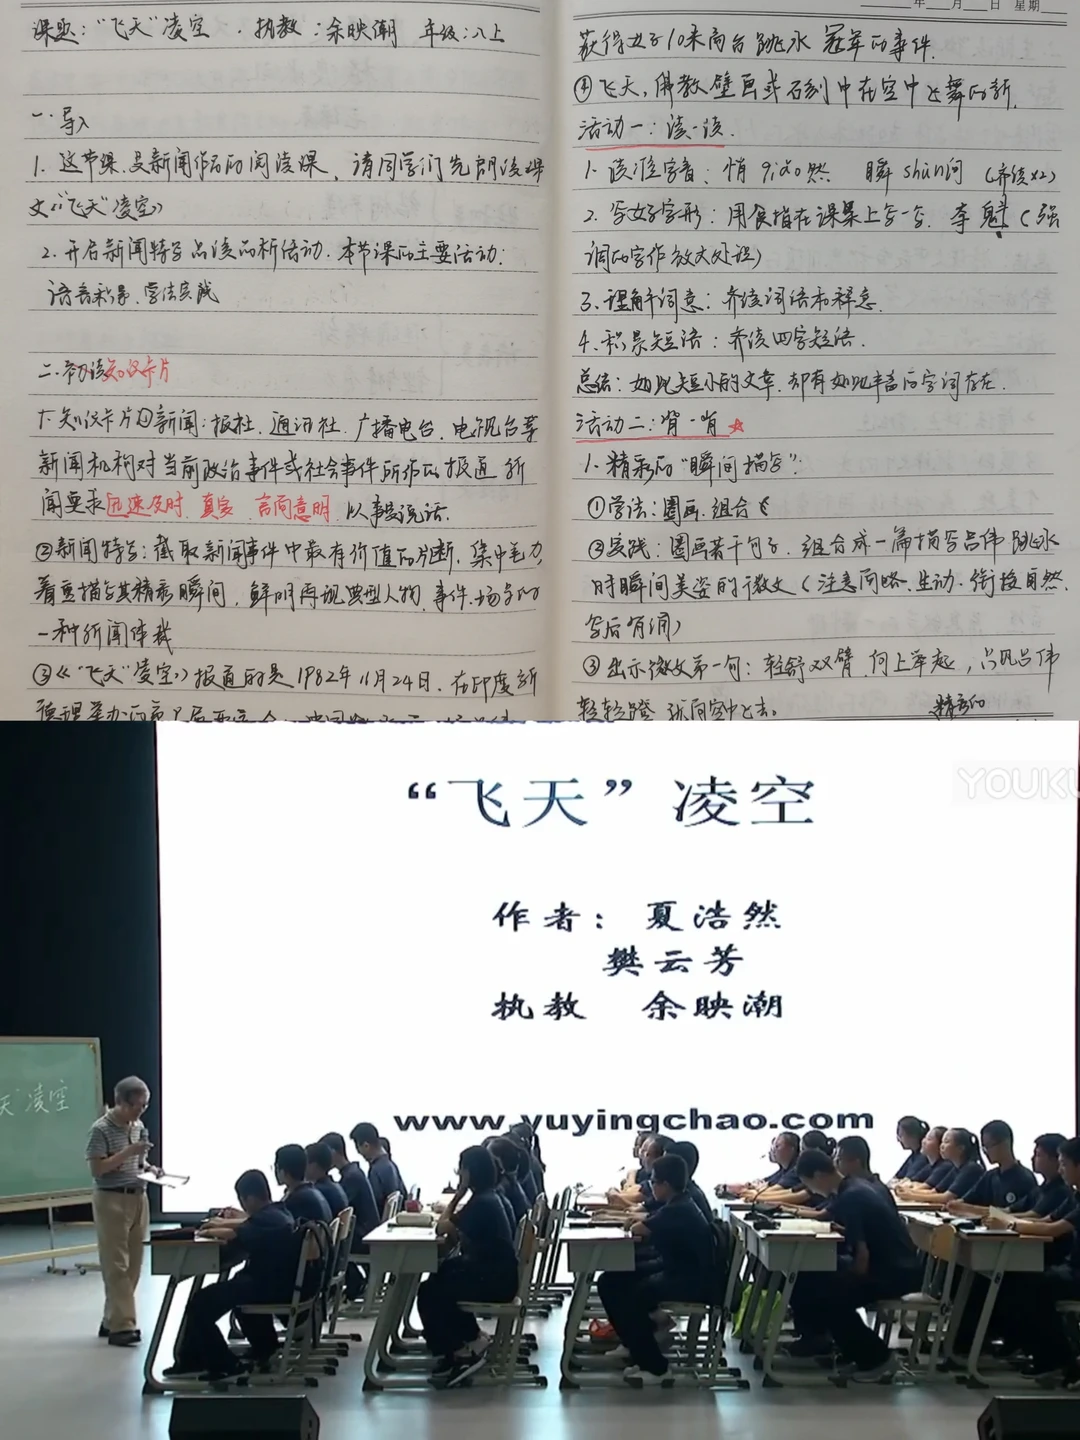 课题："飞天"凌空 . 执教：余映潮 年级：八上
一.导入
1. 这节课是新闻作品的阅读课，请同学们先朗读课
文《"飞天"凌空》
2. 开启新闻特写品读品析活动. 本节课的主要活动：
语言积累、学法实践
二.初读知识卡片
1.知识卡片①新闻：报社、通讯社、广播电台、电视台等
新闻机构对当前政治事件或社会事件所作的报道 新
闻要求迅速及时、真实、言简意明、以事实说话.
②新闻特写：截取新闻事件中最有价值的片断，集中笔力，
着重描写其精彩瞬间，鲜明再现典型人物、事件、场景的
一种新闻体裁
③《"飞天"凌空》报道的是1982年11月24日、在印度新
德里举办的第九届亚运会
年 月 日 星期
获得女子10米高台跳水冠军的事件.
④飞天，佛教壁画或石刻中在空中飞舞的神.
活动一：读一读.
1. 读准字音：悄qiǎo然 瞬shùn间（齐读x2）
2. 写好字形：用食指在课桌上写一写. 李魁（强
调的字作放大处理）
3. 理解词意：齐读词语和释意.
4. 积累短语：齐读四字短语.
总结：如此短小的文章，却有如此丰富的字词存在.
活动二：背一背 ☆
1. 精彩的"瞬间描写"：
①学法：圈画、组合
②实践：圈画若干句子，组合成一篇描写吕伟跳水
时瞬间美姿的微文（注意简略、生动、衔接自然、
③出示微文第一句：轻舒双臂，向上举起，只见吕伟
轻轻一蹬，跃向空中飞去。
精彩的
YOUKU
"飞天"凌空
作者： 夏浩然
樊云芳
执教 余映潮
www.yuyingchao.com
天"凌空